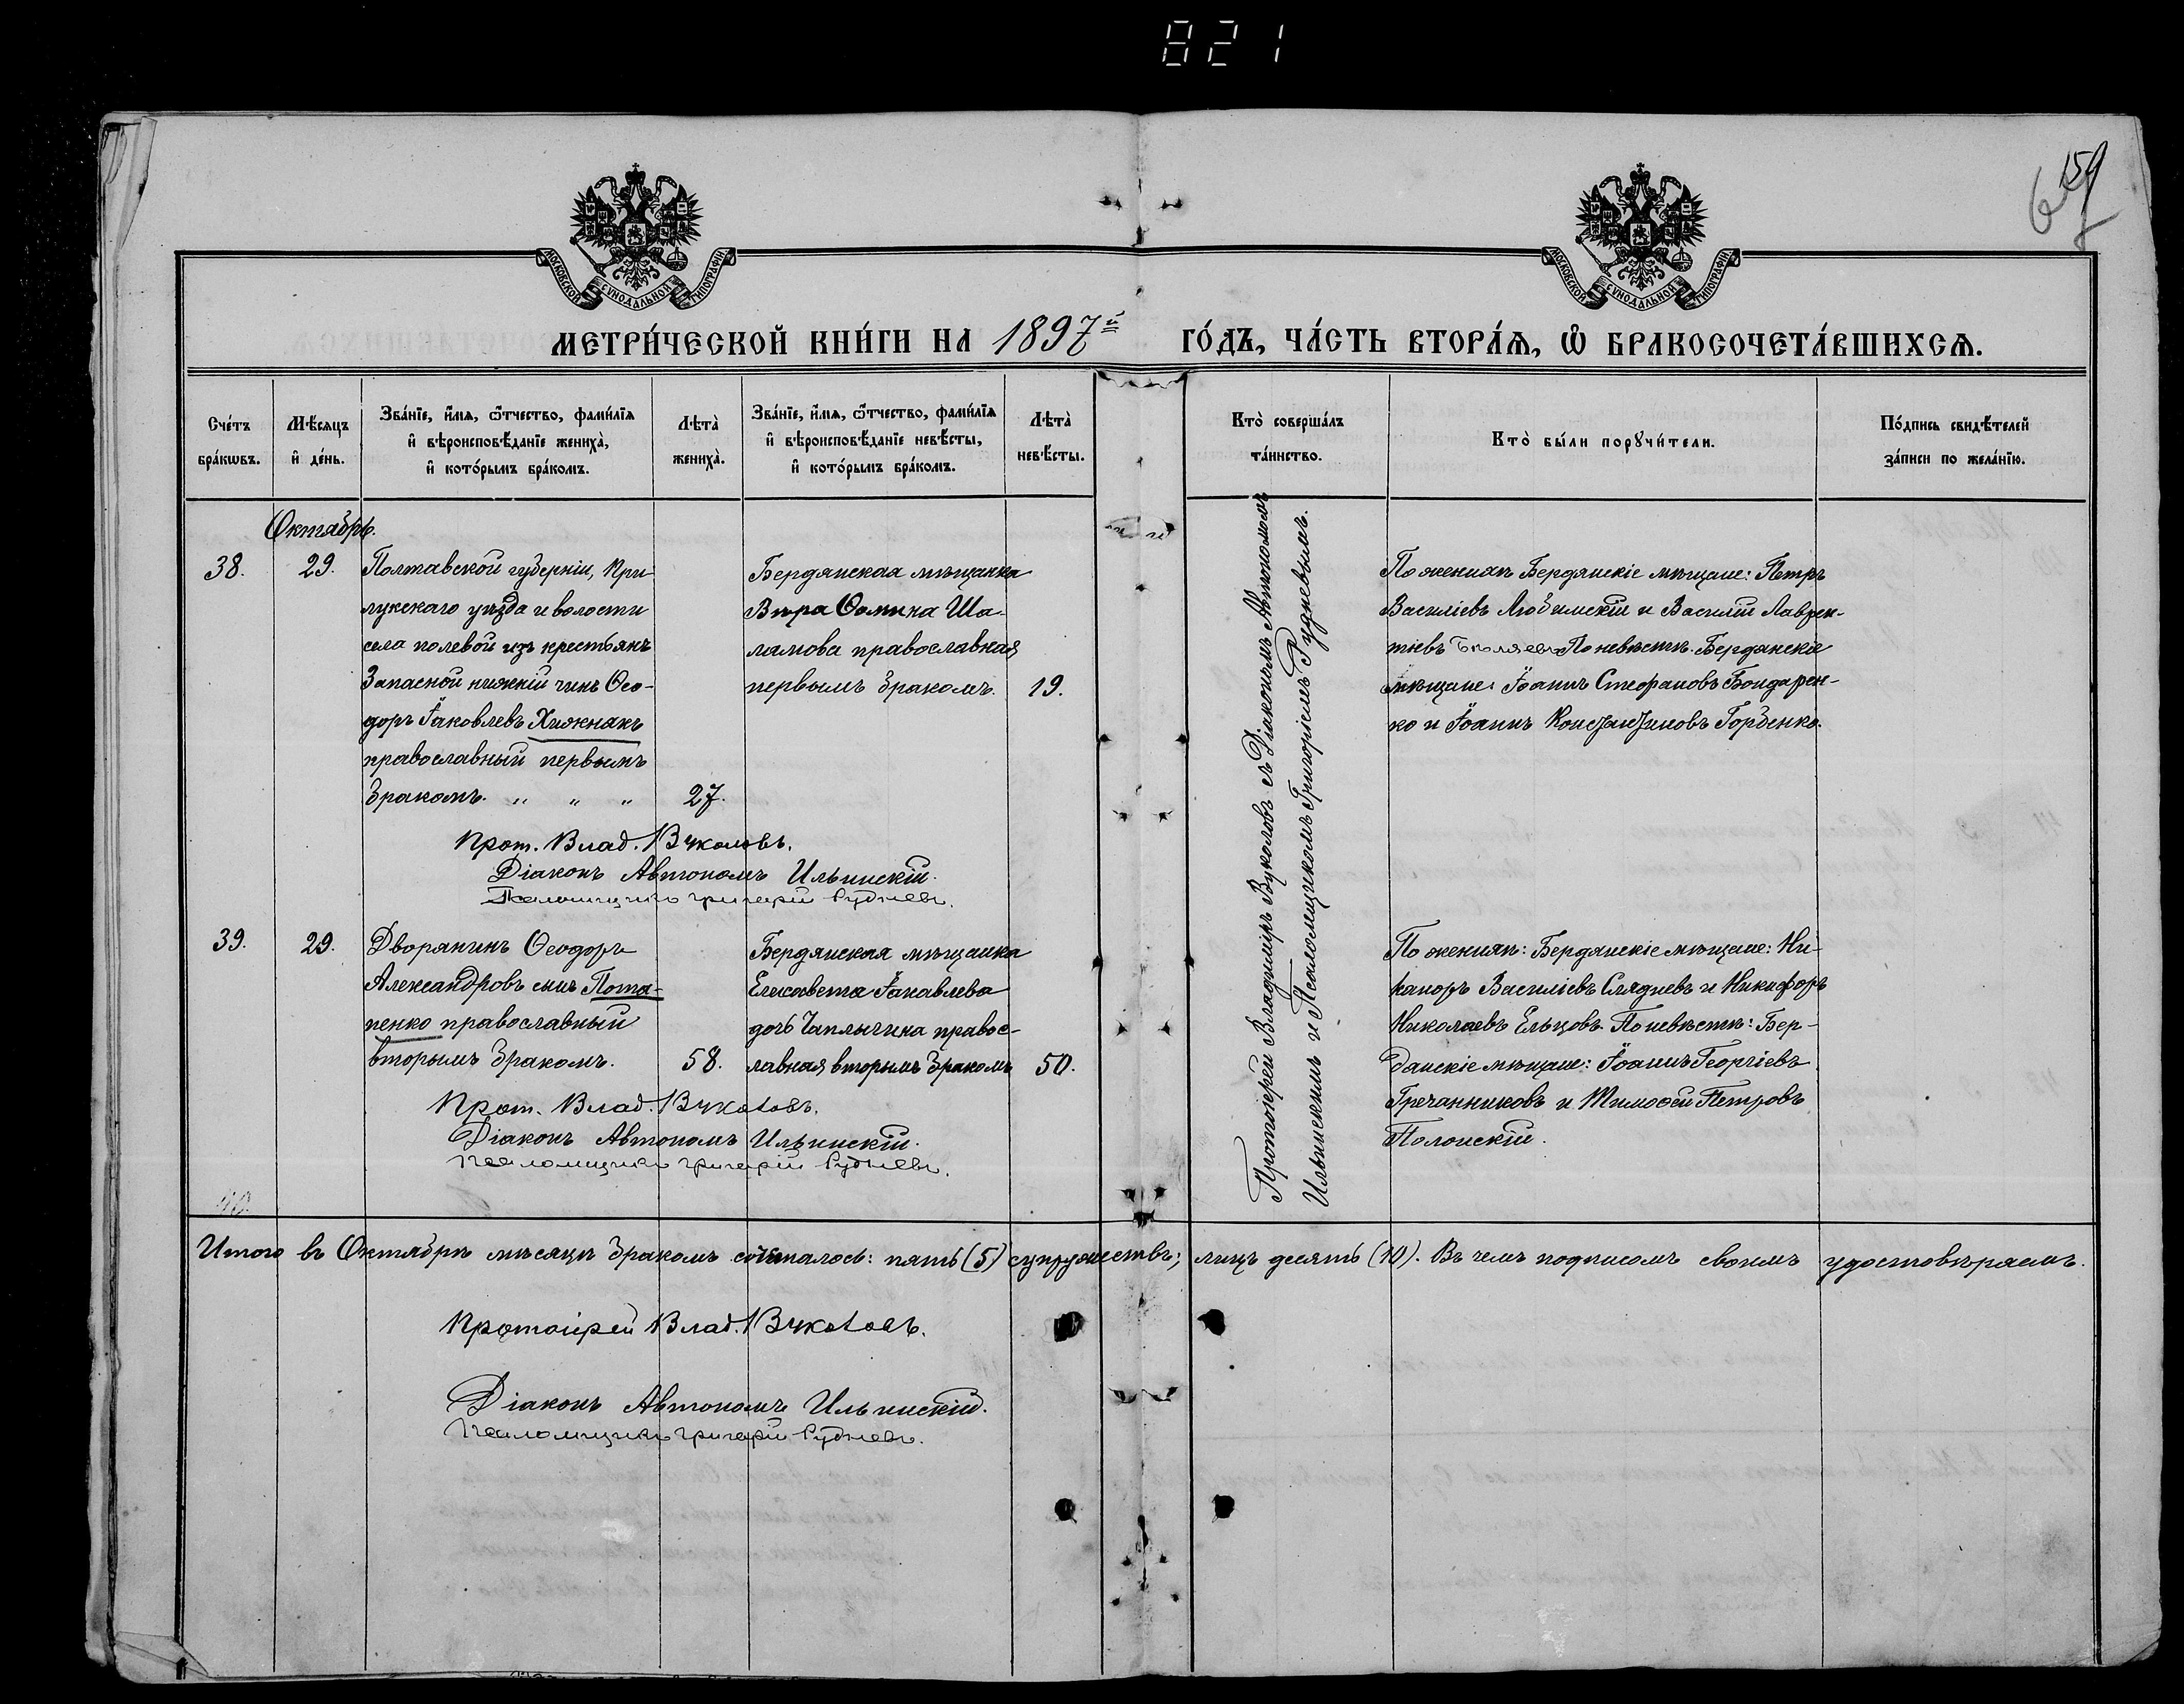 821
159
МОСКОВСКОЙ СѴНОДАЛЬНОЙ ТИПОГРАФІИ
МОСКОВСКОЙ СѴНОДАЛЬНОЙ ТИПОГРАФІИ
МЕТРИ́ЧЕСКОЙ КНИ́ГИ НА 1897й ГО́ДЪ, ЧА́СТЬ ВТОРА́Ѧ, Ѡ҆ БРАКОСОЧЕТА́ВШИХСѦ.
Сче́тъ
бра́кѡвъ.
Мѣ́сѧцъ
и҆ де́нь.
Зва́нїе, и҆́мѧ, ѻ҆́тчество, фами́лїѧ
и҆ вѣроисповѣ́данїе жениха̀,
и҆ кото́рымъ бра́комъ.
Лѣта̀
жениха̀.
Зва́нїе, и҆́мѧ, ѻ҆́тчество, фами́лїѧ
и҆ вѣроисповѣ́данїе невѣ́сты,
и҆ кото́рымъ бра́комъ.
Лѣта̀
невѣ́сты.
Кто̀ соверша́лъ
та́инство.
Кто̀ бы́ли порꙋчи́тели.
По́дпись свидѣ́телей
за́писи по жела́нїю.
Октябрь.
38.
29.
Полтавской губерніи, При
лукскаго уѣзда и волости
села полевой изъ крестьянъ
Запасной нижній чинъ Ѳео-
доръ Іаковлевъ Хижнякъ
православный первымъ
бракомъ. " " "
27.
Бердянская мѣщанка
Вѣра Ѳомина Ша-
ламова православная
первымъ бракомъ.
19.
Протоіерей Владиміръ Вуколовъ съ Діакономъ Автономомъ
Ильинскимъ и Псаломщикомъ Григоріемъ Рудневымъ.
По женихѣ Бердянскіе мѣщане: Петръ
Василіевъ Любимскій и Василій Лаврен-
тіевъ Бѣляевъ По невѣстѣ. Бердянскіе
мѣщане: Іоаннъ Стефановъ Бондарен-
ко и Іоаннъ Константиновъ Горбенко.
Прот. Влад. Вуколовъ.
Діаконъ Автономъ Ильинскій.
Псаломщикъ Григорій Рудневъ.
39.
29.
Дворянинъ Ѳеодоръ
Александровъ сынъ Пота-
пенко православный
вторымъ бракомъ.
58.
Бердянская мѣщанка
Елисавета Іакавлева
дочь Чаплыгина правос-
лавная вторымъ бракомъ
50.
По женихѣ: Бердянскіе мѣщане: Ни-
каноръ Василіевъ Слядневъ и Никифоръ
Николаевъ Ельцовъ. По невѣстѣ: Бер-
дянскіе мѣщане: Іоаннъ Георгіевъ
Гречанниковъ и Тимоѳей Петровъ
Полонскій.
Прот. Влад. Вуколовъ.
Діаконъ Автономъ Ильинскій.
Псаломщикъ Григорій Рудневъ.
40.
Итого въ Октябрѣ мѣсяцѣ бракомъ сочеталось: пять (5) супружествъ; лицъ десять (10). Въ чемъ подписомъ своимъ удостовѣряемъ.
Протоіерей Влад. Вуколовъ.
Діаконъ Автономъ Ильинскій.
Псаломщикъ Григорій Рудневъ.